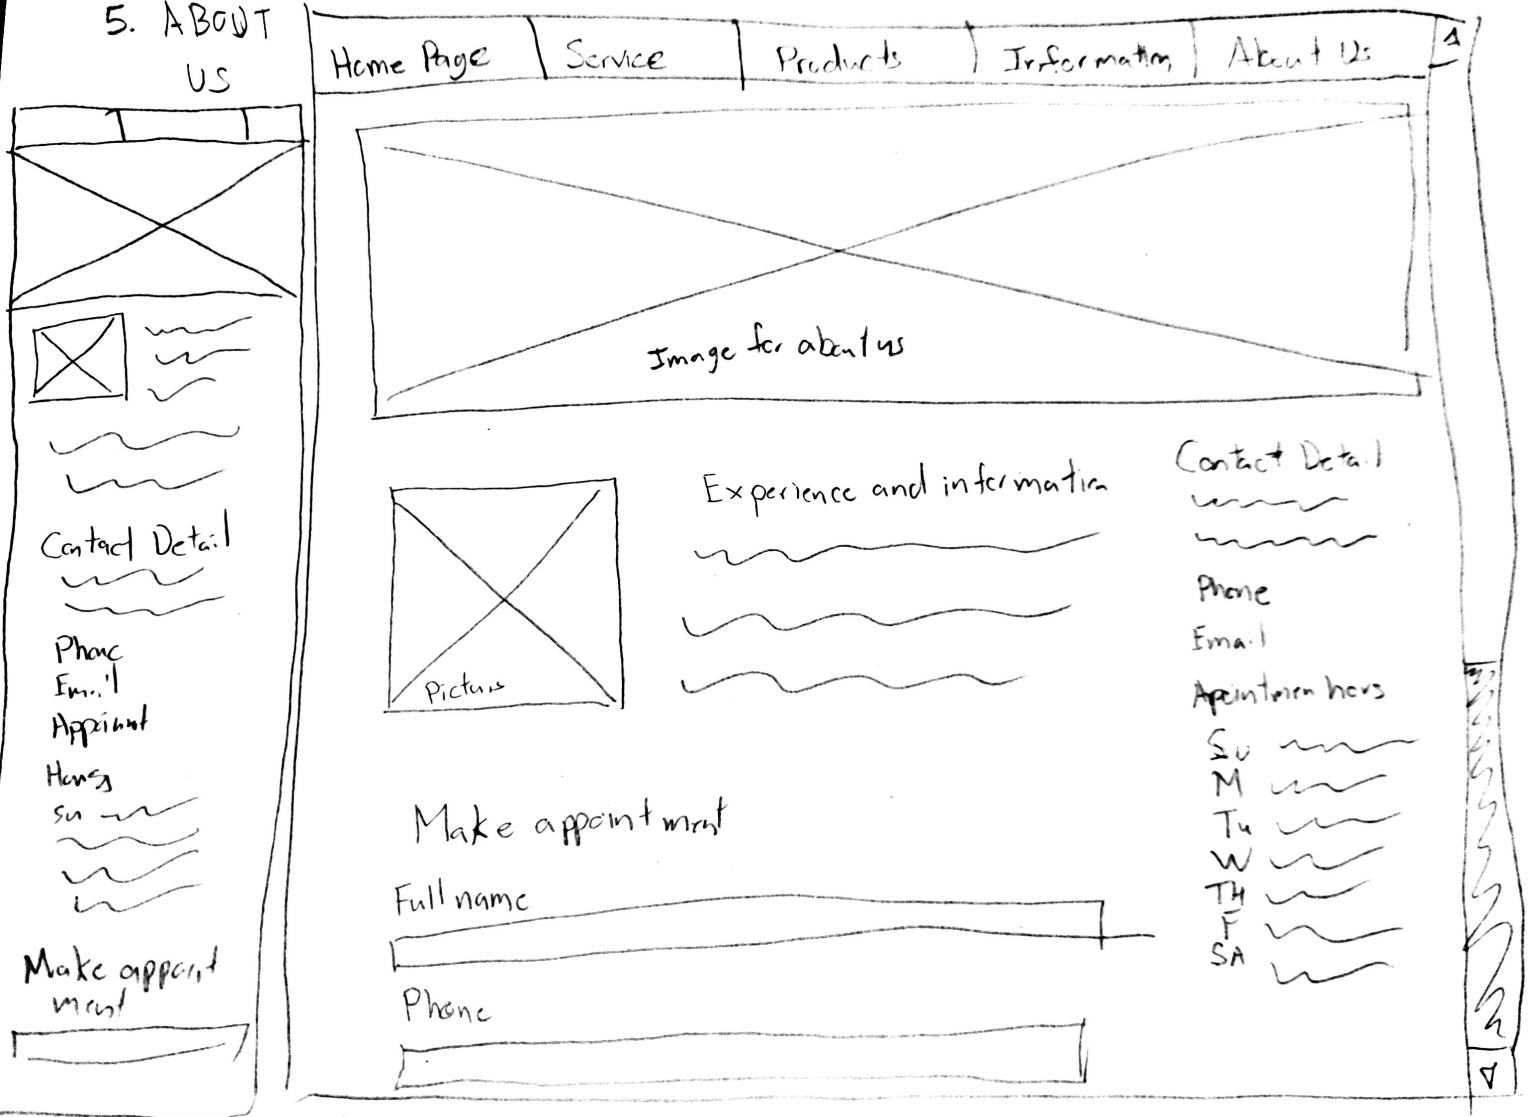 5. ABOUT
US
Contact Detail
Phone
Email
Appoinmt
Hours
Su
Make appoint
ment
Home Page Service Products Information About Us
Image for about us
Picture
Experience and information
Contact Detail
Phone
Email
Apointmen hours
Su
M
Tu
W
TH
F
SA
Make appointment
Full name
Phone